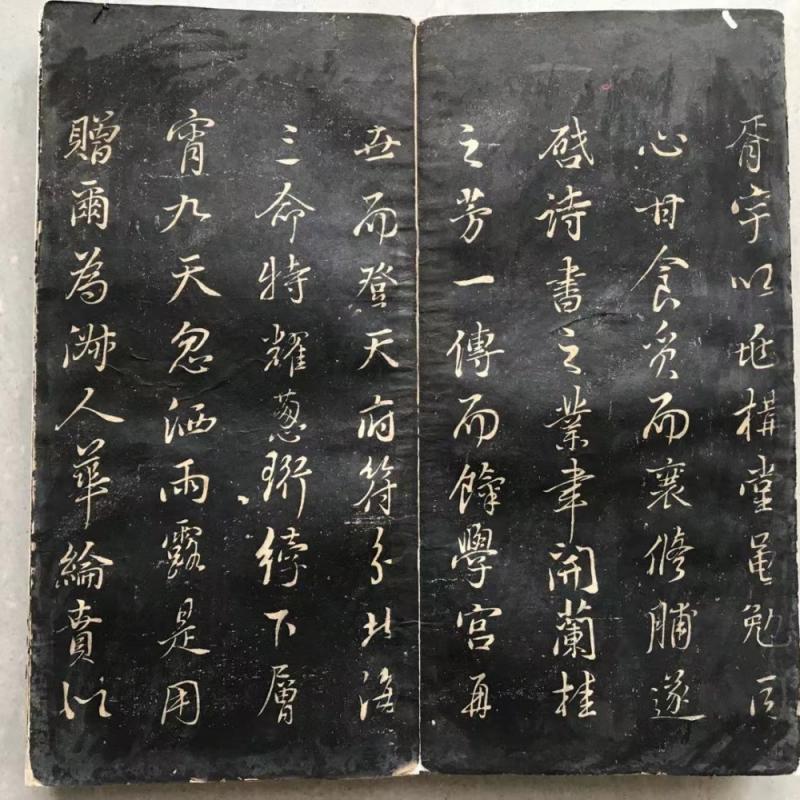 胥宇以堆構堂黽勉同
心甘食貧而襄脩脯遂
啓詩書之業聿開蘭桂
之芳一傳而餼學宮再
世而登天府符分北海
三命特耀蔥珩綍下層
霄九天忽洒雨露是用
贈爾為淑人華綸賁以